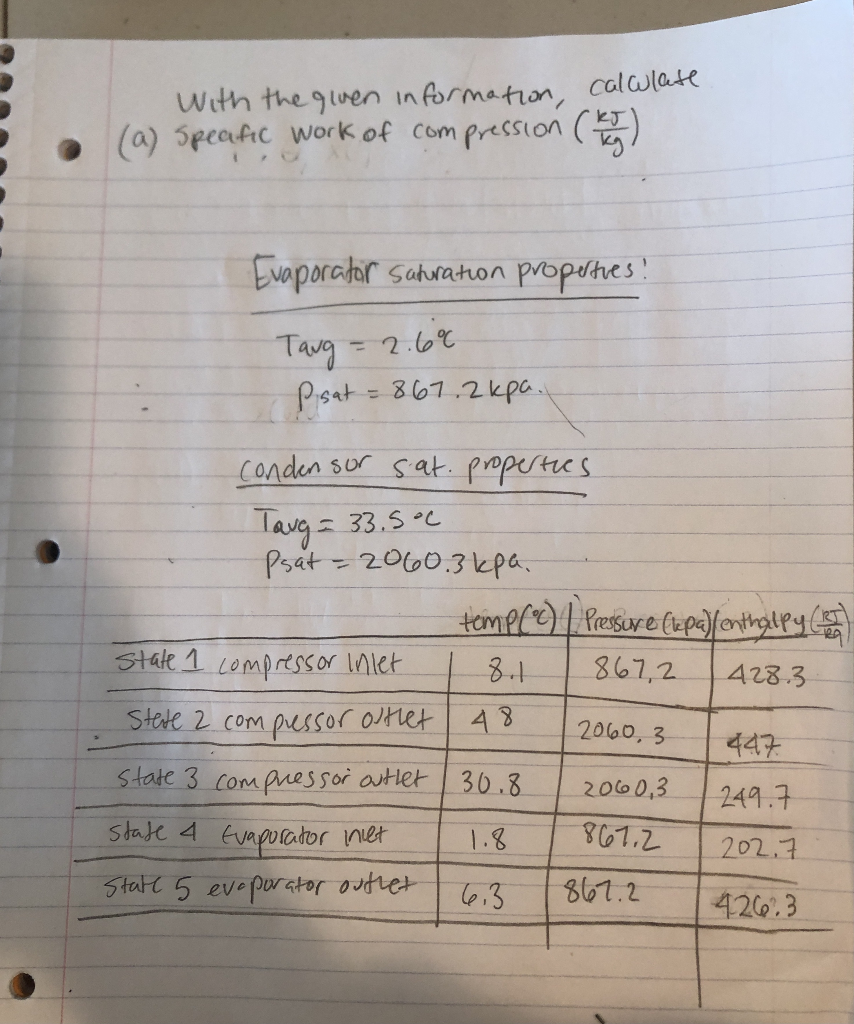 With the given information, calculate
(a) Specific work of compression (kJ/kg)
Evaporator saturation properties!
Tavg = 2.6°C
Psat = 867.2 kpa.
Condensor sat. properties
Tavg = 33.5 °C
Psat = 2060.3 kpa.
temp(°C) | Pressure (kpa) | enthalpy (kJ/kg)
State 1 compressor inlet | 8.1 | 867,2 | 428.3
State 2 compressor outlet | 48 | 2060,3 | 447
State 3 compressor outlet | 30.8 | 2060,3 | 249.7
State 4 Evaporator inlet | 1.8 | 867.2 | 202.7
State 5 evaporator outlet | 6.3 | 867.2 | 426.3